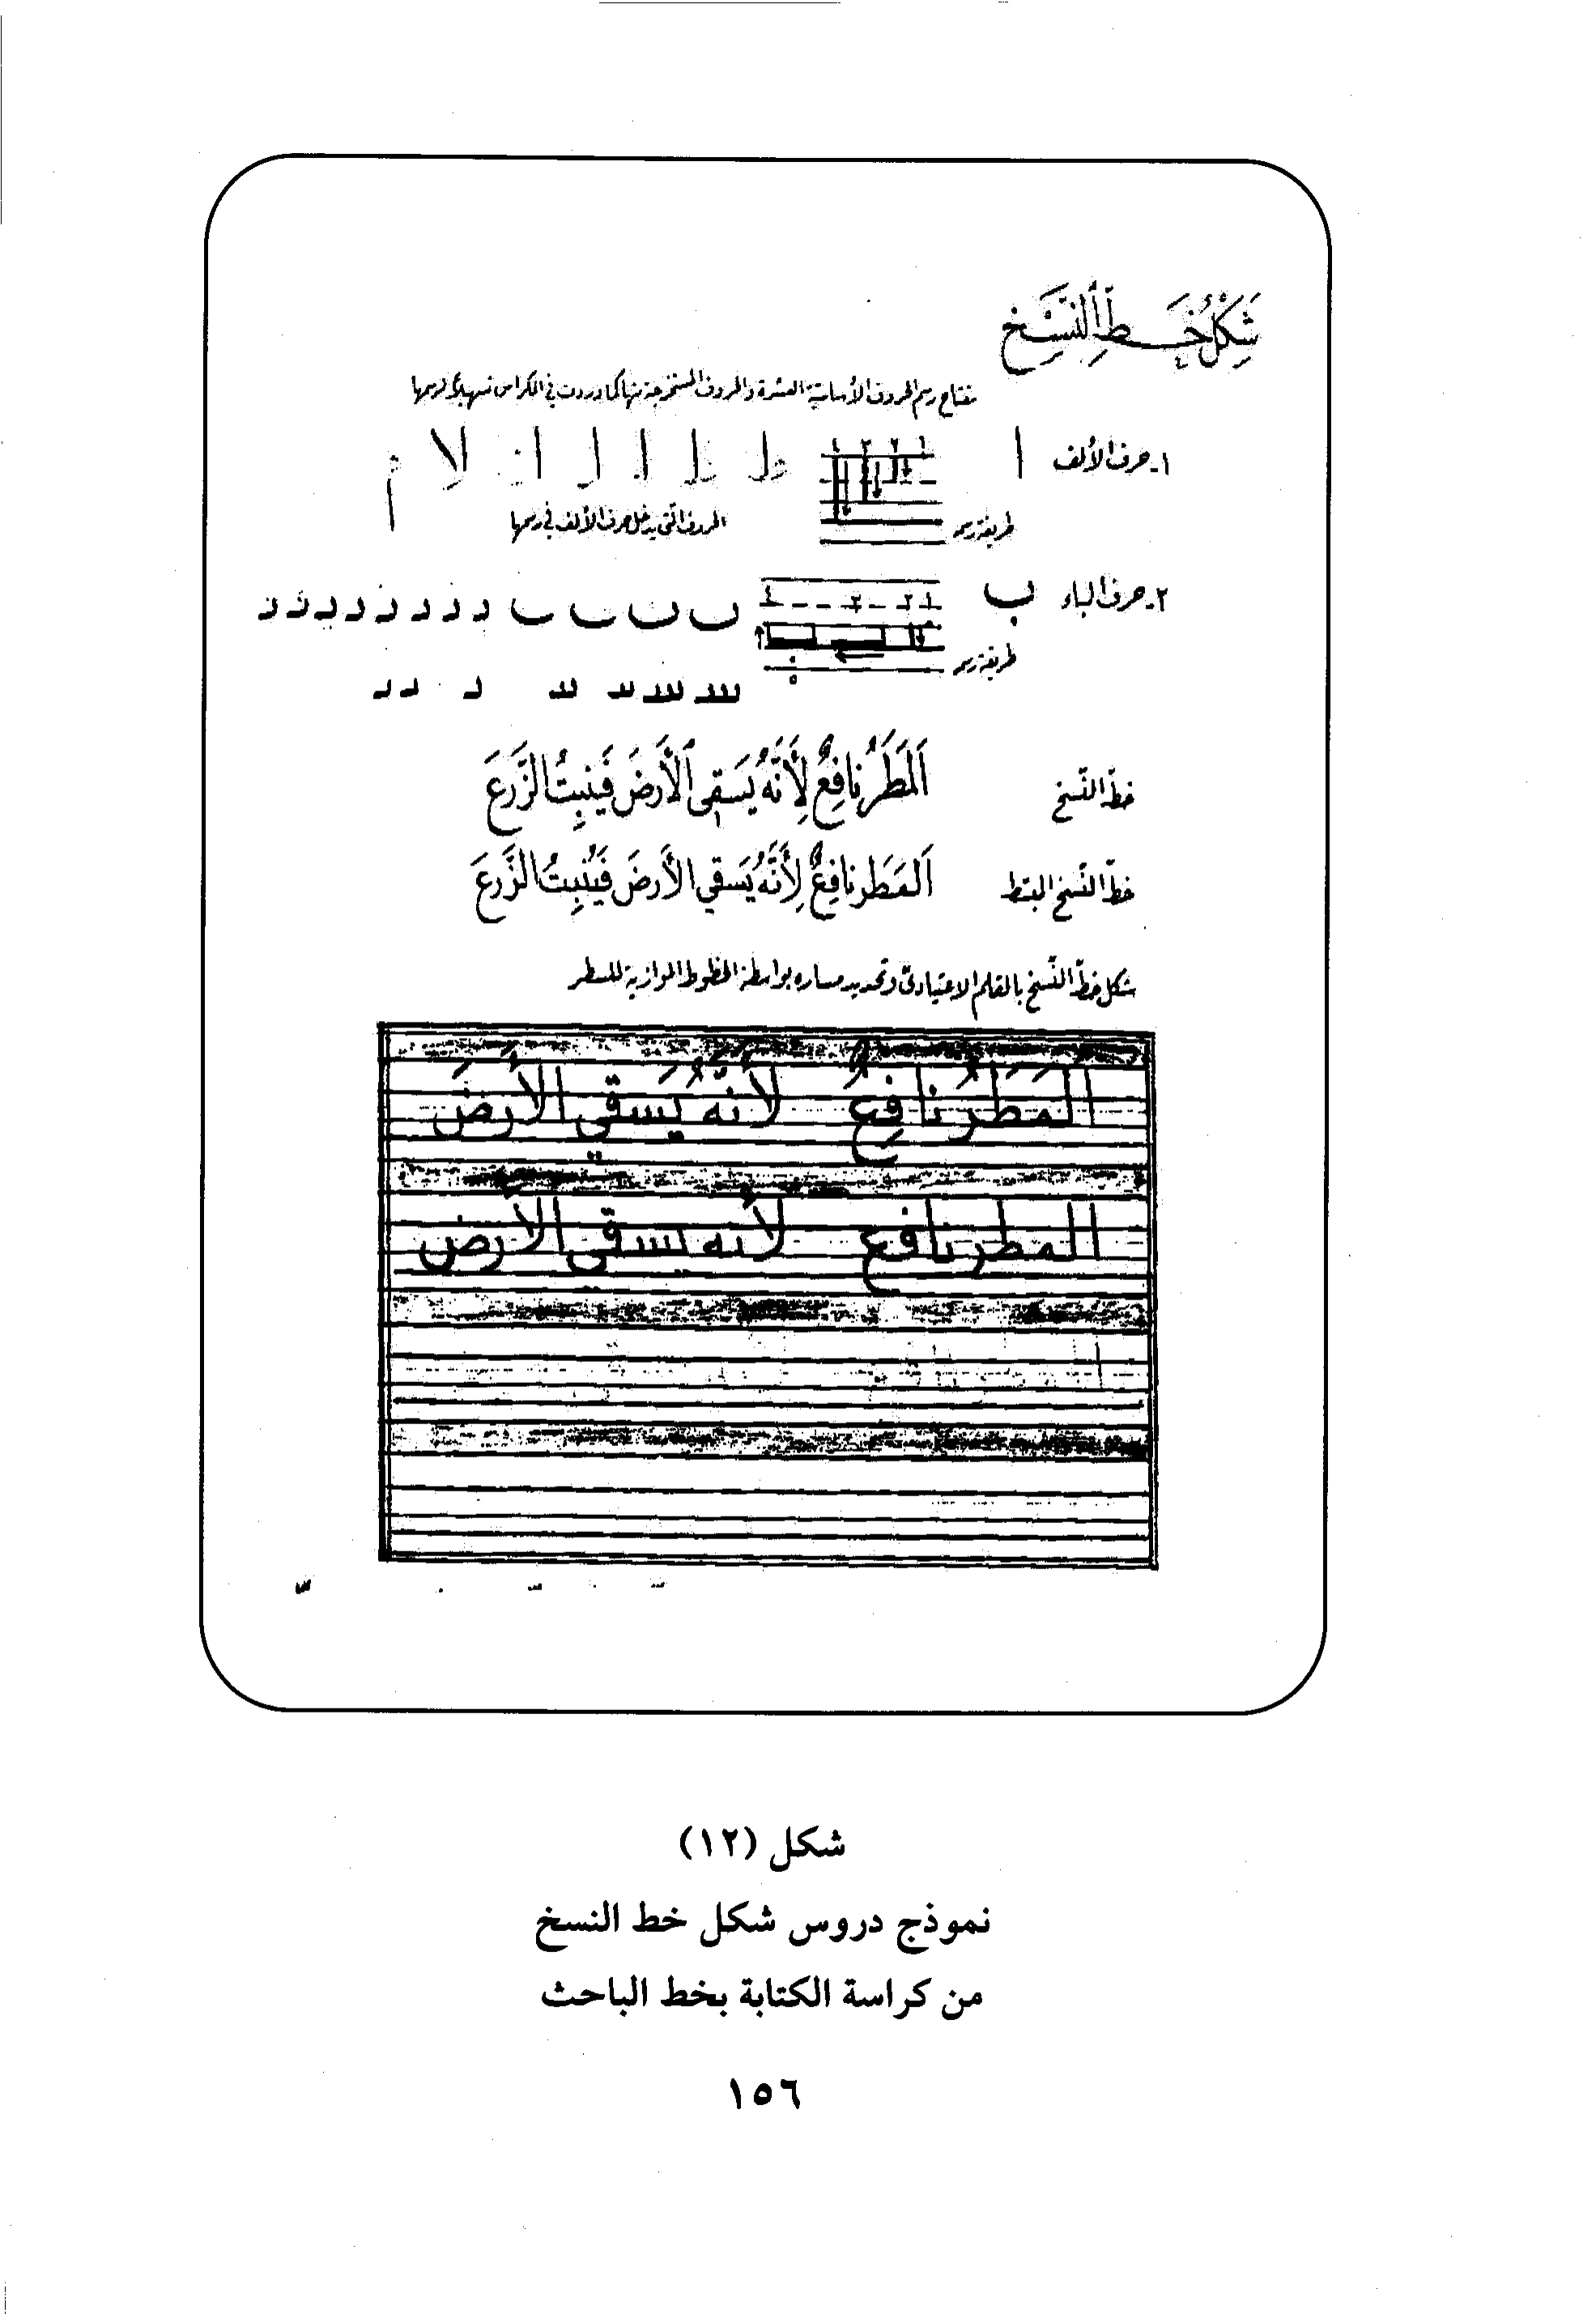 شَكْلُ خَطِّ النَّسْخِ
مفتاح رسم الحروف الأساسية العشرة والحروف المستخرجة منها كما وردت في الكراس تسهيلاً لرسمها
١- حرف الألف ا
١ ٢ ٣ ٤
لا م
طريقة رسمه
الحروف التي يدخل حرف الألف في رسمها
٢- حرف الباء ب
١ ٢ ٣ ٤
طريقة رسمه
٥
خطّ النّسخ اَلمَطَرُ نافِعٌ لِأَنَّهُ يَسقِى اَلأَرضَ فَيُنبِتُ الزَّرعَ
خطّ النّسخ المبسّط اَلمَطَر نافِعٌ لِأَنَّهُ يَسقي الأَرضَ فَيُنبِتُ الزَّرعَ
شكل خطّ النّسخ بالقلم الاعتيادي وتحديد مساره بواسطة الخطوط الموازية للسطر
المَطَرُ نافِعٌ لأَنَّهُ يَسقي الأَرضَ
المطر نافع لأنه يسقي الأرض
شكل (١٢)
نموذج دروس شكل خط النسخ
من كراسة الكتابة بخط الباحث
١٥٦